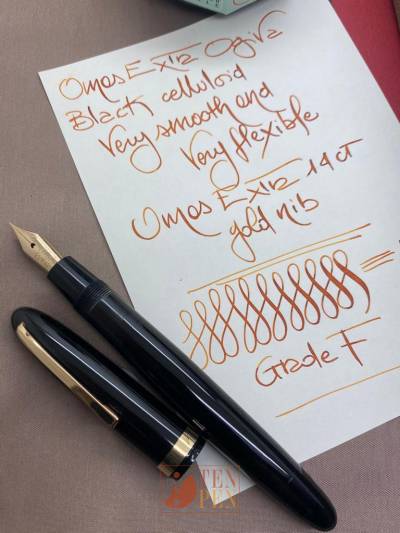 Omas Extra Ogiva
Black celluloid
Very smooth and
Very flexible
Omas Extra 14 ct
gold nib
Grade F
TEN
PEN